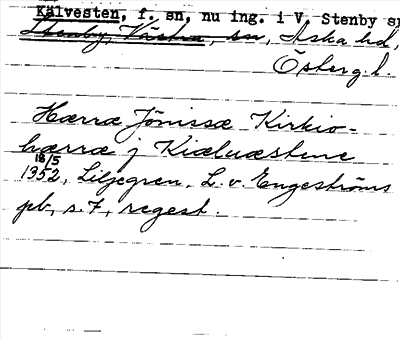 Kälvesten, f. sn, nu ing. i V. Stenby sn
Stenby, Västra, sn, Aska hd,
Östergl.
Hærræ Jönissæ Kirkio-
hærræ j Kiæluæstene
18/5
1352, Liljegren, L. v. Engeströms
pb, s. 7, regest.